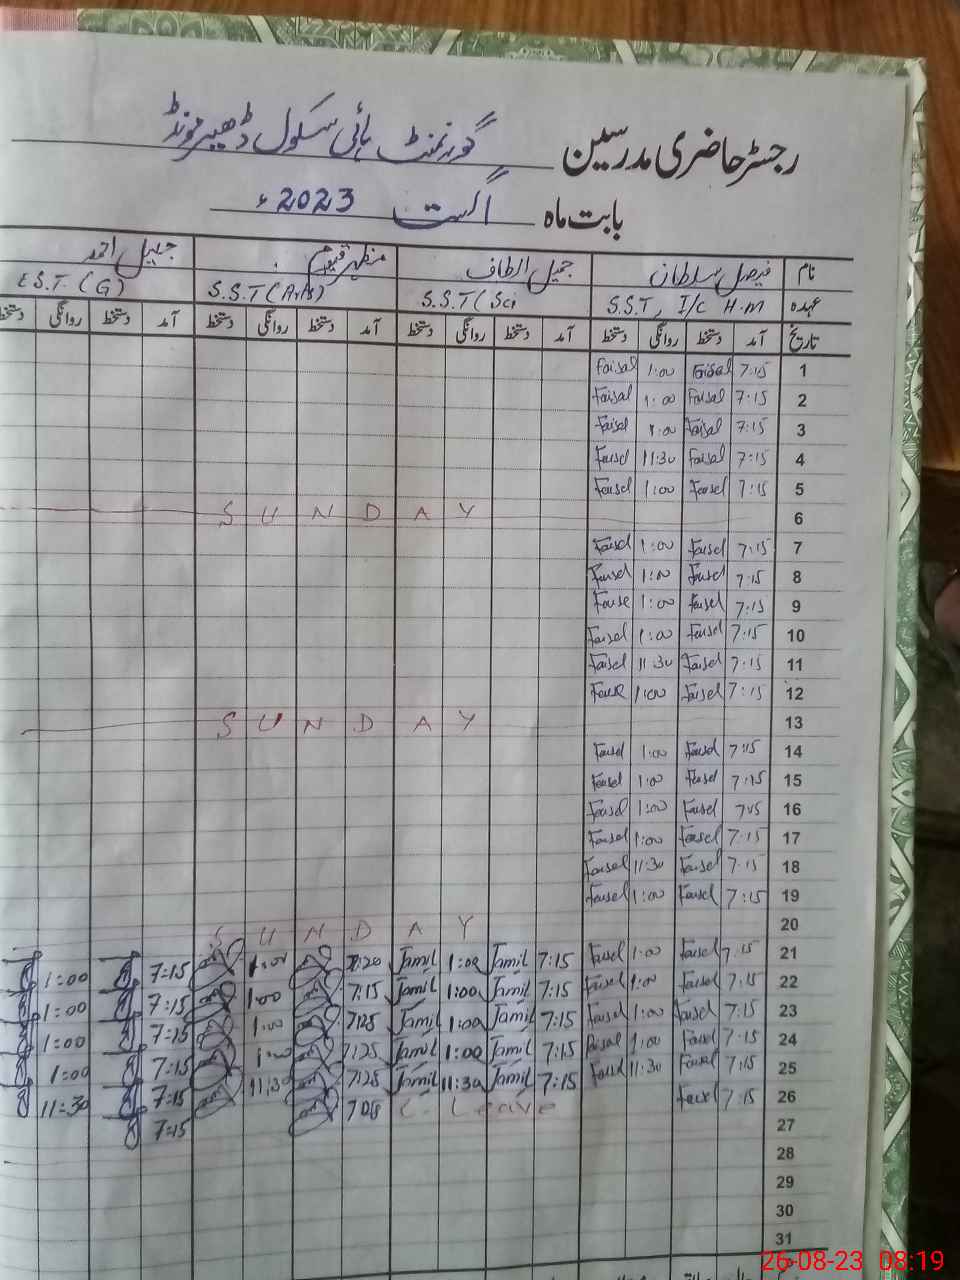 رجسٹر حاضری مدرسین گورنمنٹ ہائی سکول ڈھیرمونڈ
بابت ماہ اگست 2023ء
نام فیصل سلطان جمیل الطاف منظر قیوم جمیل احمد
عہدہ S.S.T, I/c H.M S.S.T (Sci S.S.T (Arts) E.S.T. (G)
تاریخ آمد دستخط روانگی دستخط آمد دستخط روانگی دستخط آمد دستخط روانگی دستخط آمد دستخط روانگی دستخط
1 7:15 Faisal 1:00 Faisal
2 7:15 Faisal 1:00 Faisal
3 7:15 Faisal 1:00 Faisal
4 7:15 Faisal 11:30 Faisal
5 7:15 Faisal 1:00 Faisal
6 SUNDAY
7 7:15 Faisal 1:00 Faisal
8 7:15 Faisal 1:00 Faisal
9 7:15 Faisal 1:00 Faisal
10 7:15 Faisal 1:00 Faisal
11 7:15 Faisal 11:30 Faisal
12 7:15 Faisal 1:00 Faisal
13 SUNDAY
14 7:15 Faisal 1:00 Faisal
15 7:15 Faisal 1:00 Faisal
16 7:15 Faisal 1:00 Faisal
17 7:15 Faisal 1:00 Faisal
18 7:15 Faisal 11:30 Faisal
19 7:15 Faisal 1:00 Faisal
20 SUNDAY
21 7:15 Faisal 1:00 Faisal 7:15 Jamil 1:00 Jamil 7:20 1:00 7:15 1:00
22 7:15 Faisal 1:00 Faisal 7:15 Jamil 1:00 Jamil 7:15 1:00 7:15 1:00
23 7:15 Faisal 1:00 Faisal 7:15 Jamil 1:00 Jamil 7:25 1:00 7:15 1:00
24 7:15 Faisal 1:00 Faisal 7:15 Jamil 1:00 Jamil 7:25 1:00 7:15 1:00
25 7:15 Faisal 11:30 Faisal 7:15 Jamil 11:30 Jamil 7:25 11:30 7:15 11:30
26 7:15 Faisal C. Leave 7:15
27
28
29
30
31
26-08-23 08:19